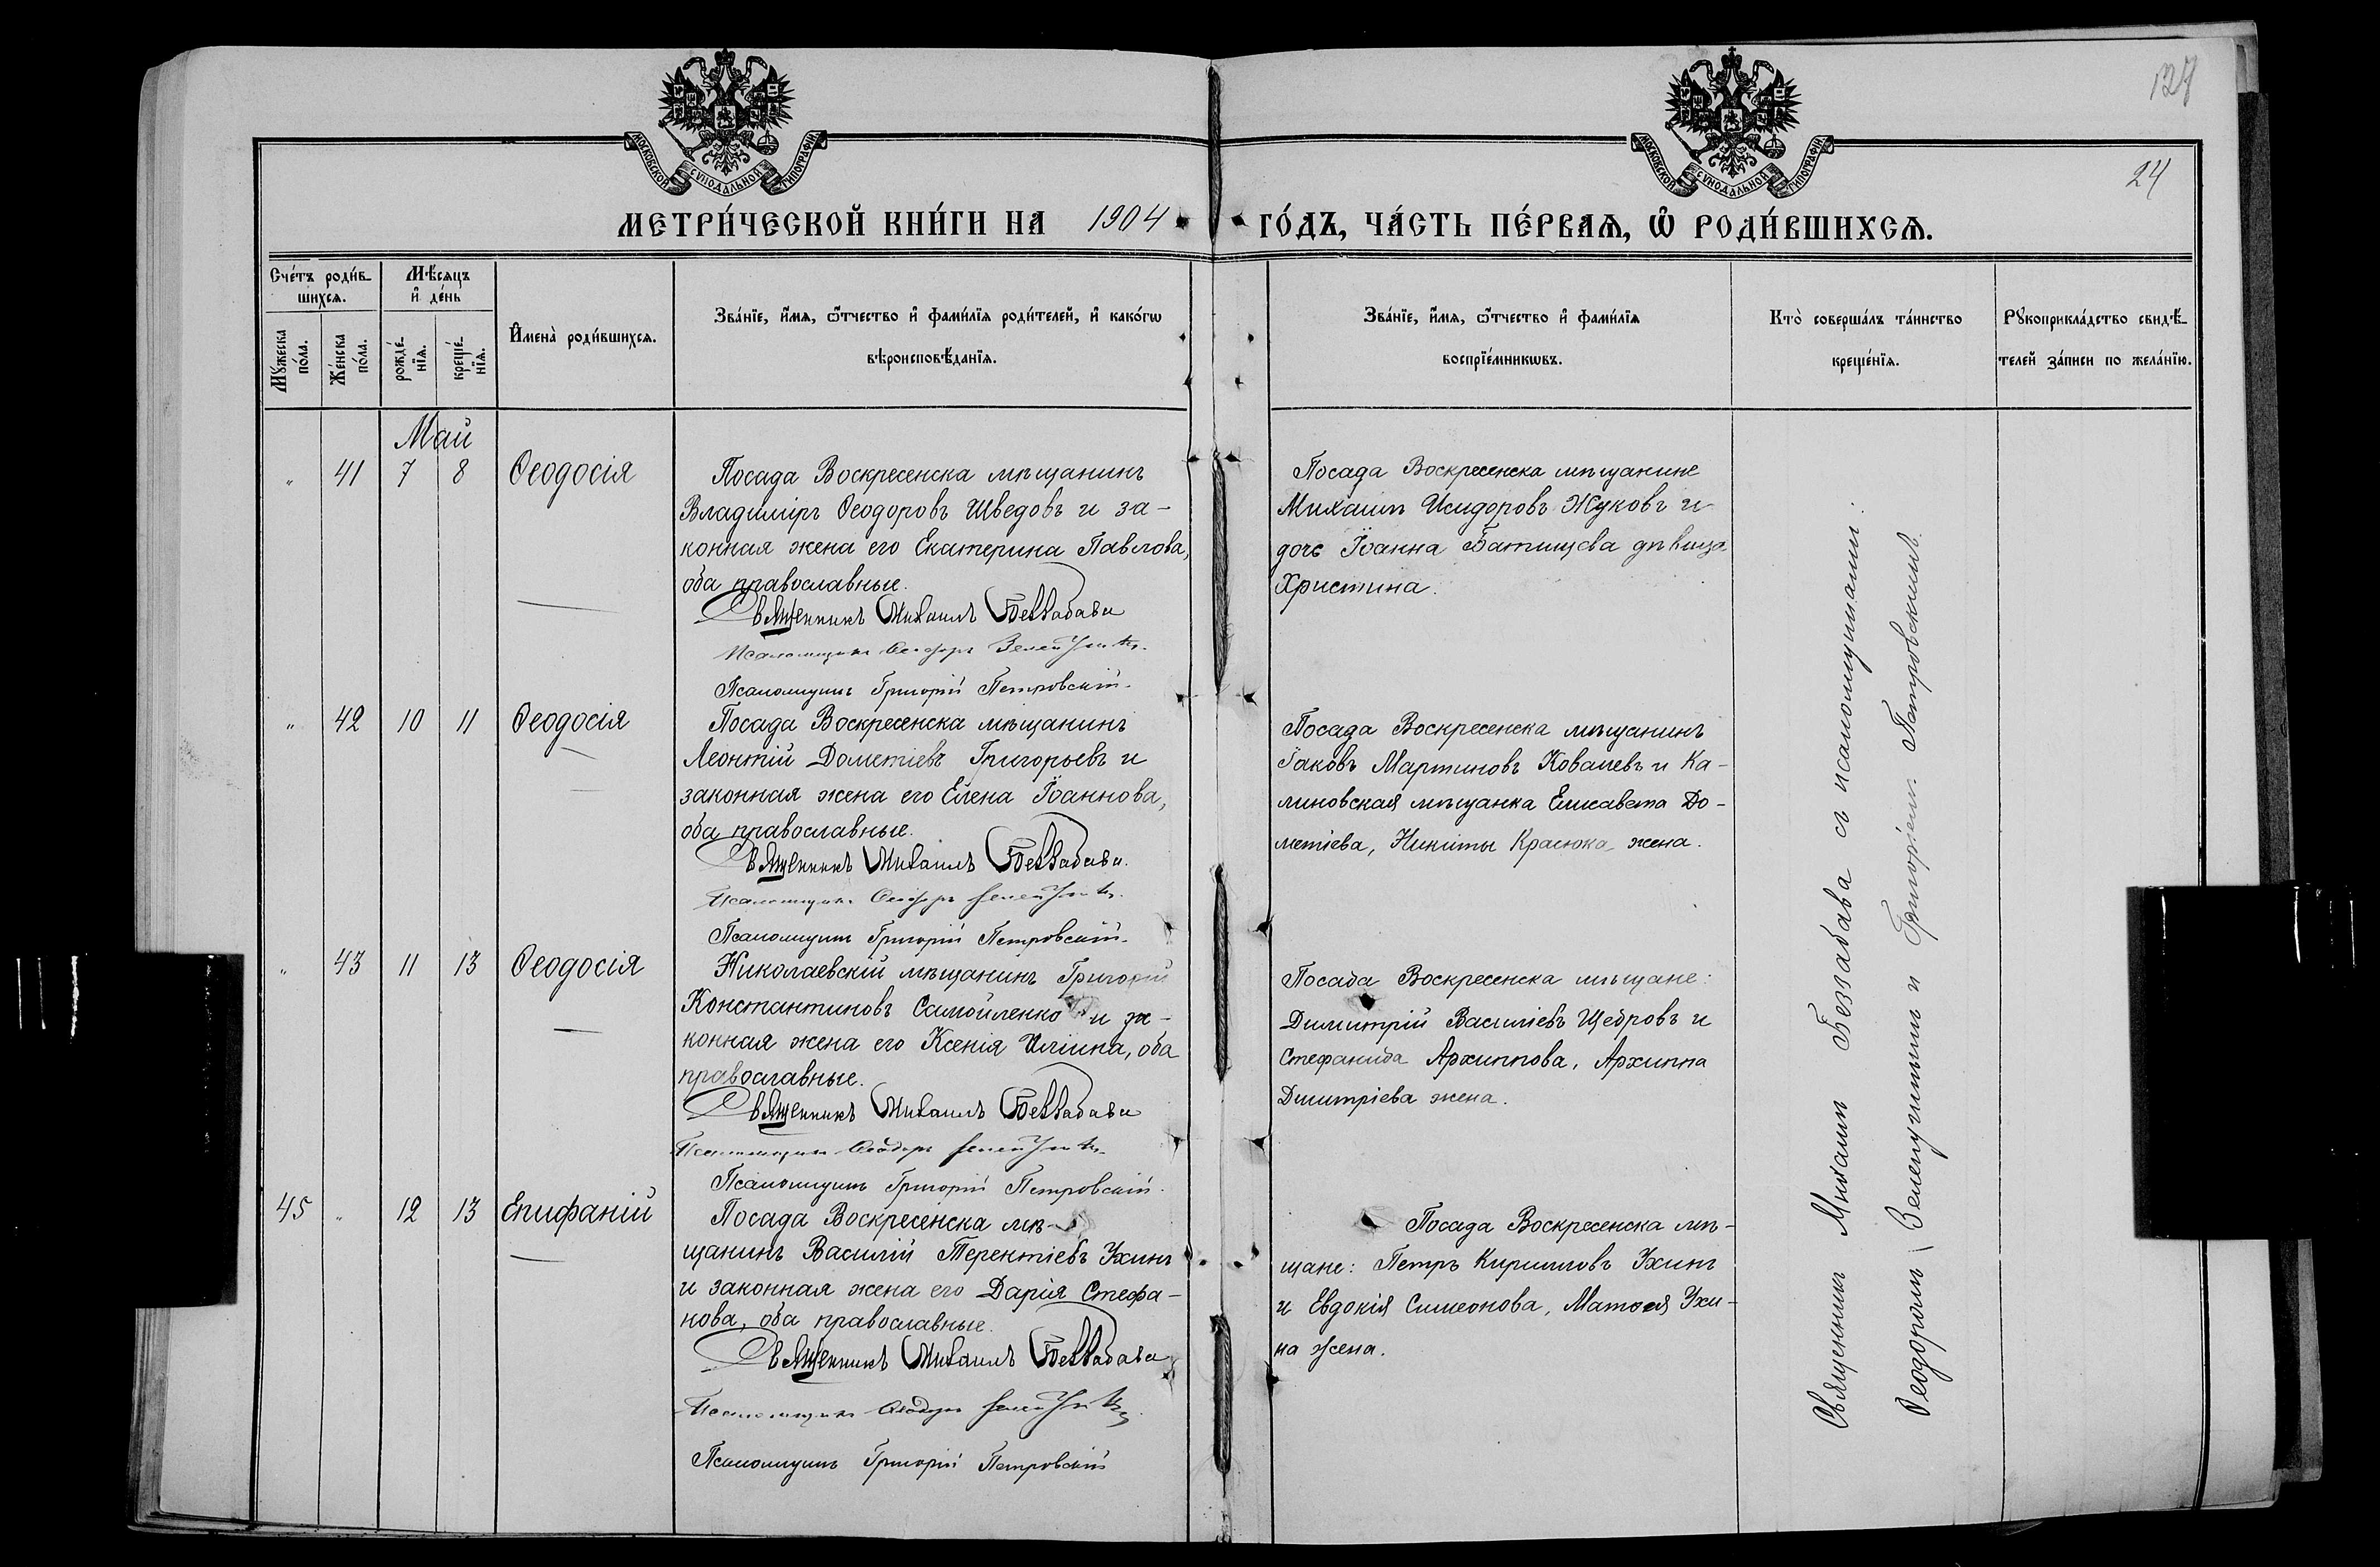 127
24
МОСКОВСКОЙ СѴНОДАЛЬНОЙ ТИПОГРАФІИ
МОСКОВСКОЙ СѴНОДАЛЬНОЙ ТИПОГРАФІИ
МЕТРИ́ЧЕСКОЙ КНИ́ГИ НА 1904 ГО́ДЪ, ЧА́СТЬ ПЕ́РВАѦ, Ѽ РОДИ́ВШИХСѦ.
Сче́тъ роди́в-
шихсѧ.
Мꙋ́жеска по́ла.
Же́нска по́ла.
Мѣ́сѧцъ
и҆ де́нь
рожде́-
нїѧ.
креще́-
нїѧ.
И҆мена̀ роди́вшихсѧ.
Зва́нїе, и҆́мѧ, ѻ҆́тчество и҆ фами́лїѧ роди́телей, и҆ како́гѡ
вѣроисповѣ́данїѧ.
Зва́нїе, и҆́мѧ, ѻ҆́тчество и҆ фами́лїѧ
воспрїе́мникѡвъ.
Кто̀ соверша́лъ та́инство
креще́нїѧ.
Рꙋкоприкла́дство свидѣ́-
телей за́писи по жела́нїю.
Май
" 41 7 8 Ѳеодосія
Посада Воскресенска мѣщанинъ
Владиміръ Ѳеодоровъ Шведовъ и за-
конная жена его Екатерина Павлова,
оба православные.
Священникъ Михаилъ Беззабава
Псаломщикъ Ѳеодоръ
Псаломщикъ Григорій Петровскій.
Посада Воскресенска мѣщанине
Михаилъ Исидоровъ Жуковъ и
дочь Іоанна Батищева дѣвица
Христина.
" 42 10 11 Ѳеодосія
Посада Воскресенска мѣщанинъ
Леонтій Дометіевъ Григорьевъ и
законная жена его Елена Іоаннова,
оба православные.
Священникъ Михаилъ Беззабава.
Псаломщикъ Ѳеодоръ
Псаломщикъ Григорій Петровскій.
Посада Воскресенска мѣщанинъ
Іаковъ Мартиновъ Ковалевъ и Ка-
линовская мѣщанка Елисавета До-
метіева, Никиты Красюка жена.
" 43 11 13 Ѳеодосія
Николаевскій мѣщанинъ Григорій
Константиновъ Самойленко и за-
конная жена его Ксенія Иліина, оба
православные.
Священникъ Михаилъ Беззабава
Псаломщикъ Ѳеодоръ
Псаломщикъ Григорій Петровскій.
Посада Воскресенска мѣщане:
Димитрій Василіевъ Щедровъ и
Стефанида Архиппова, Архиппа
Димитріева жена.
45 " 12 13 Епифаній
Посада Воскресенска мѣ-
щанинъ Василій Терентіевъ Ухинъ
и законная жена его Дарія Стефа-
нова, оба православные.
Священникъ Михаилъ Беззабава
Псаломщикъ Ѳеодоръ
Псаломщикъ Григорій Петровскій
Посада Воскресенска мѣ-
щане: Петръ Кирилловъ Ухинъ
и Евдокія Симеонова, Матѳея Ухи-
на жена.
Священникъ Михаилъ Беззабава съ псаломщиками:
Ѳеодоромъ и Григоріемъ Петровскимъ.